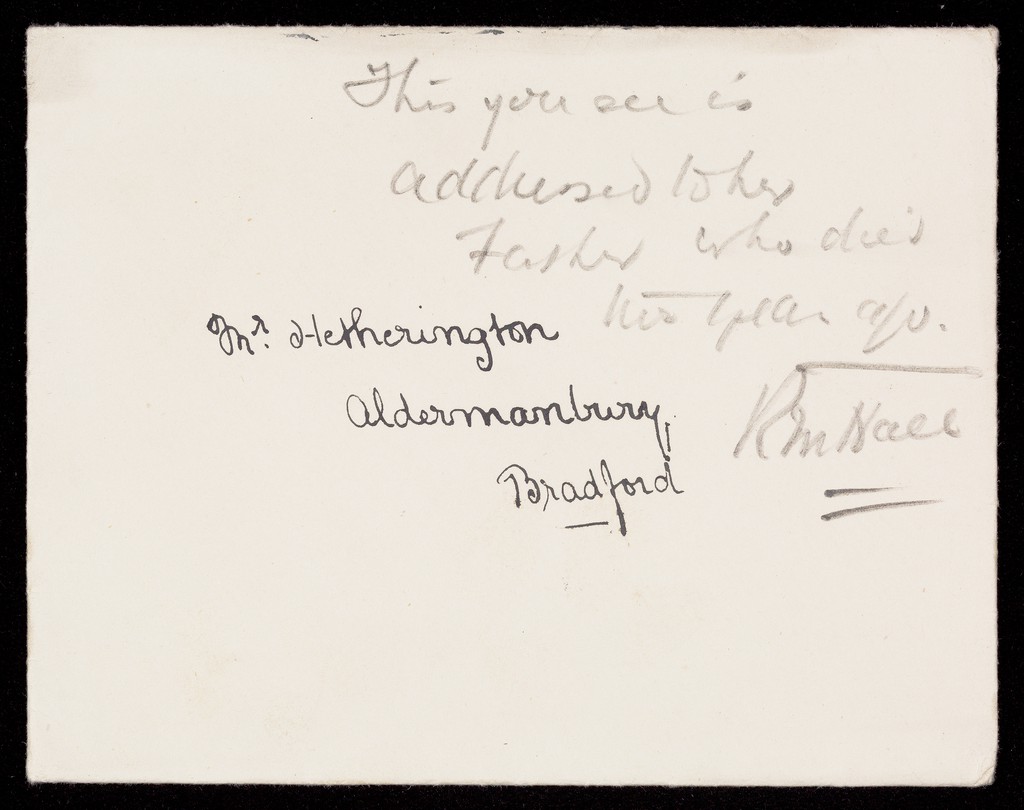 This you see is
addressed to her
Father who died
year ago.
Mr. Hetherington
Aldermanbury,
Bradford
RmHall